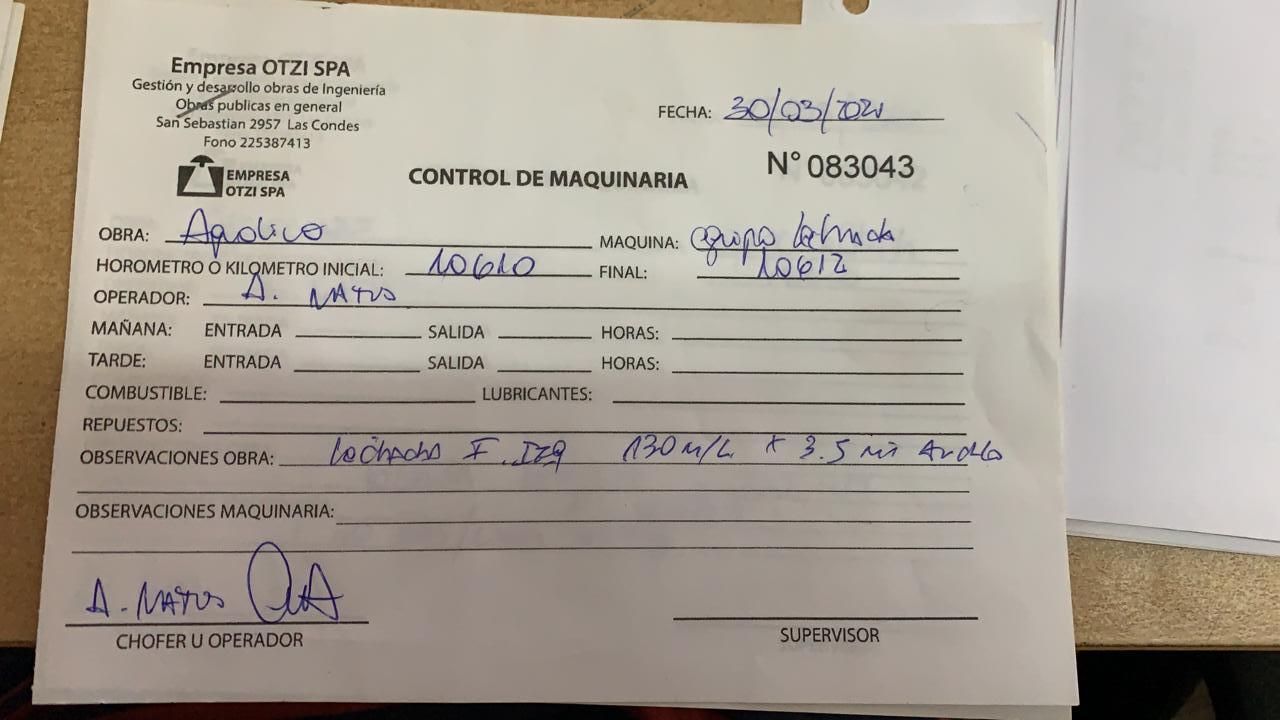 Empresa OTZI SPA
Gestión y desarrollo obras de Ingeniería
Obras publicas en general
San Sebastian 2957 Las Condes
Fono 225387413
EMPRESA
OTZI SPA
FECHA: 30/03/202
N° 083043
CONTROL DE MAQUINARIA
OBRA: MAQUINA: equipo
HOROMETRO O KILOMETRO INICIAL: 10610 FINAL: 10612
OPERADOR: A. MATUS
MAÑANA: ENTRADA SALIDA HORAS:
TARDE: ENTRADA SALIDA HORAS:
COMBUSTIBLE: LUBRICANTES:
REPUESTOS:
OBSERVACIONES OBRA: F. IZQ 130 m/L x 3.5 mt Ancho
OBSERVACIONES MAQUINARIA:
A. MATUS
CHOFER U OPERADOR
SUPERVISOR